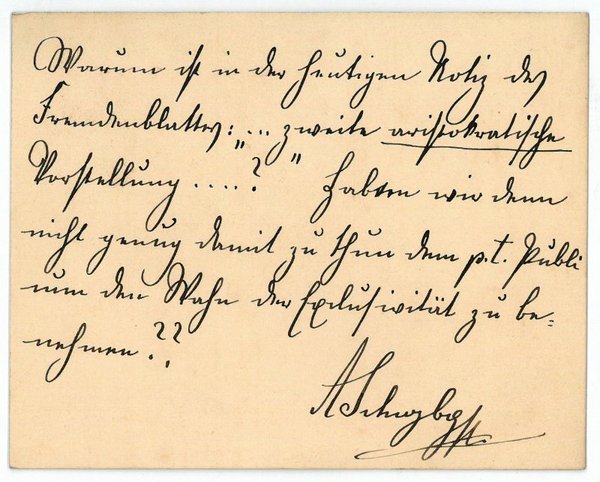 Warum ist in der heutigen Notiz des
Fremdenblattes: „... zweite aristokratische
Vorstellung ....?" Haben wir denn
nicht genug damit zu thun dem p.t. Publi
kum den Wahn der Exclusivität zu be=
nehmen??